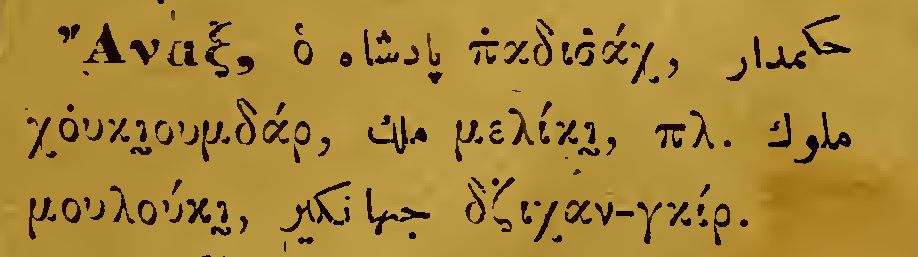 Ἄναξ, ὁ پادشاه π̇αδισ̇άχ, حكمدار
χὀυκι̮ουμδάρ, ملك μελίκι̮, πλ. ملوك
μουλούκι̮, جهانكير δζ̇ιχὰν-γκίρ.